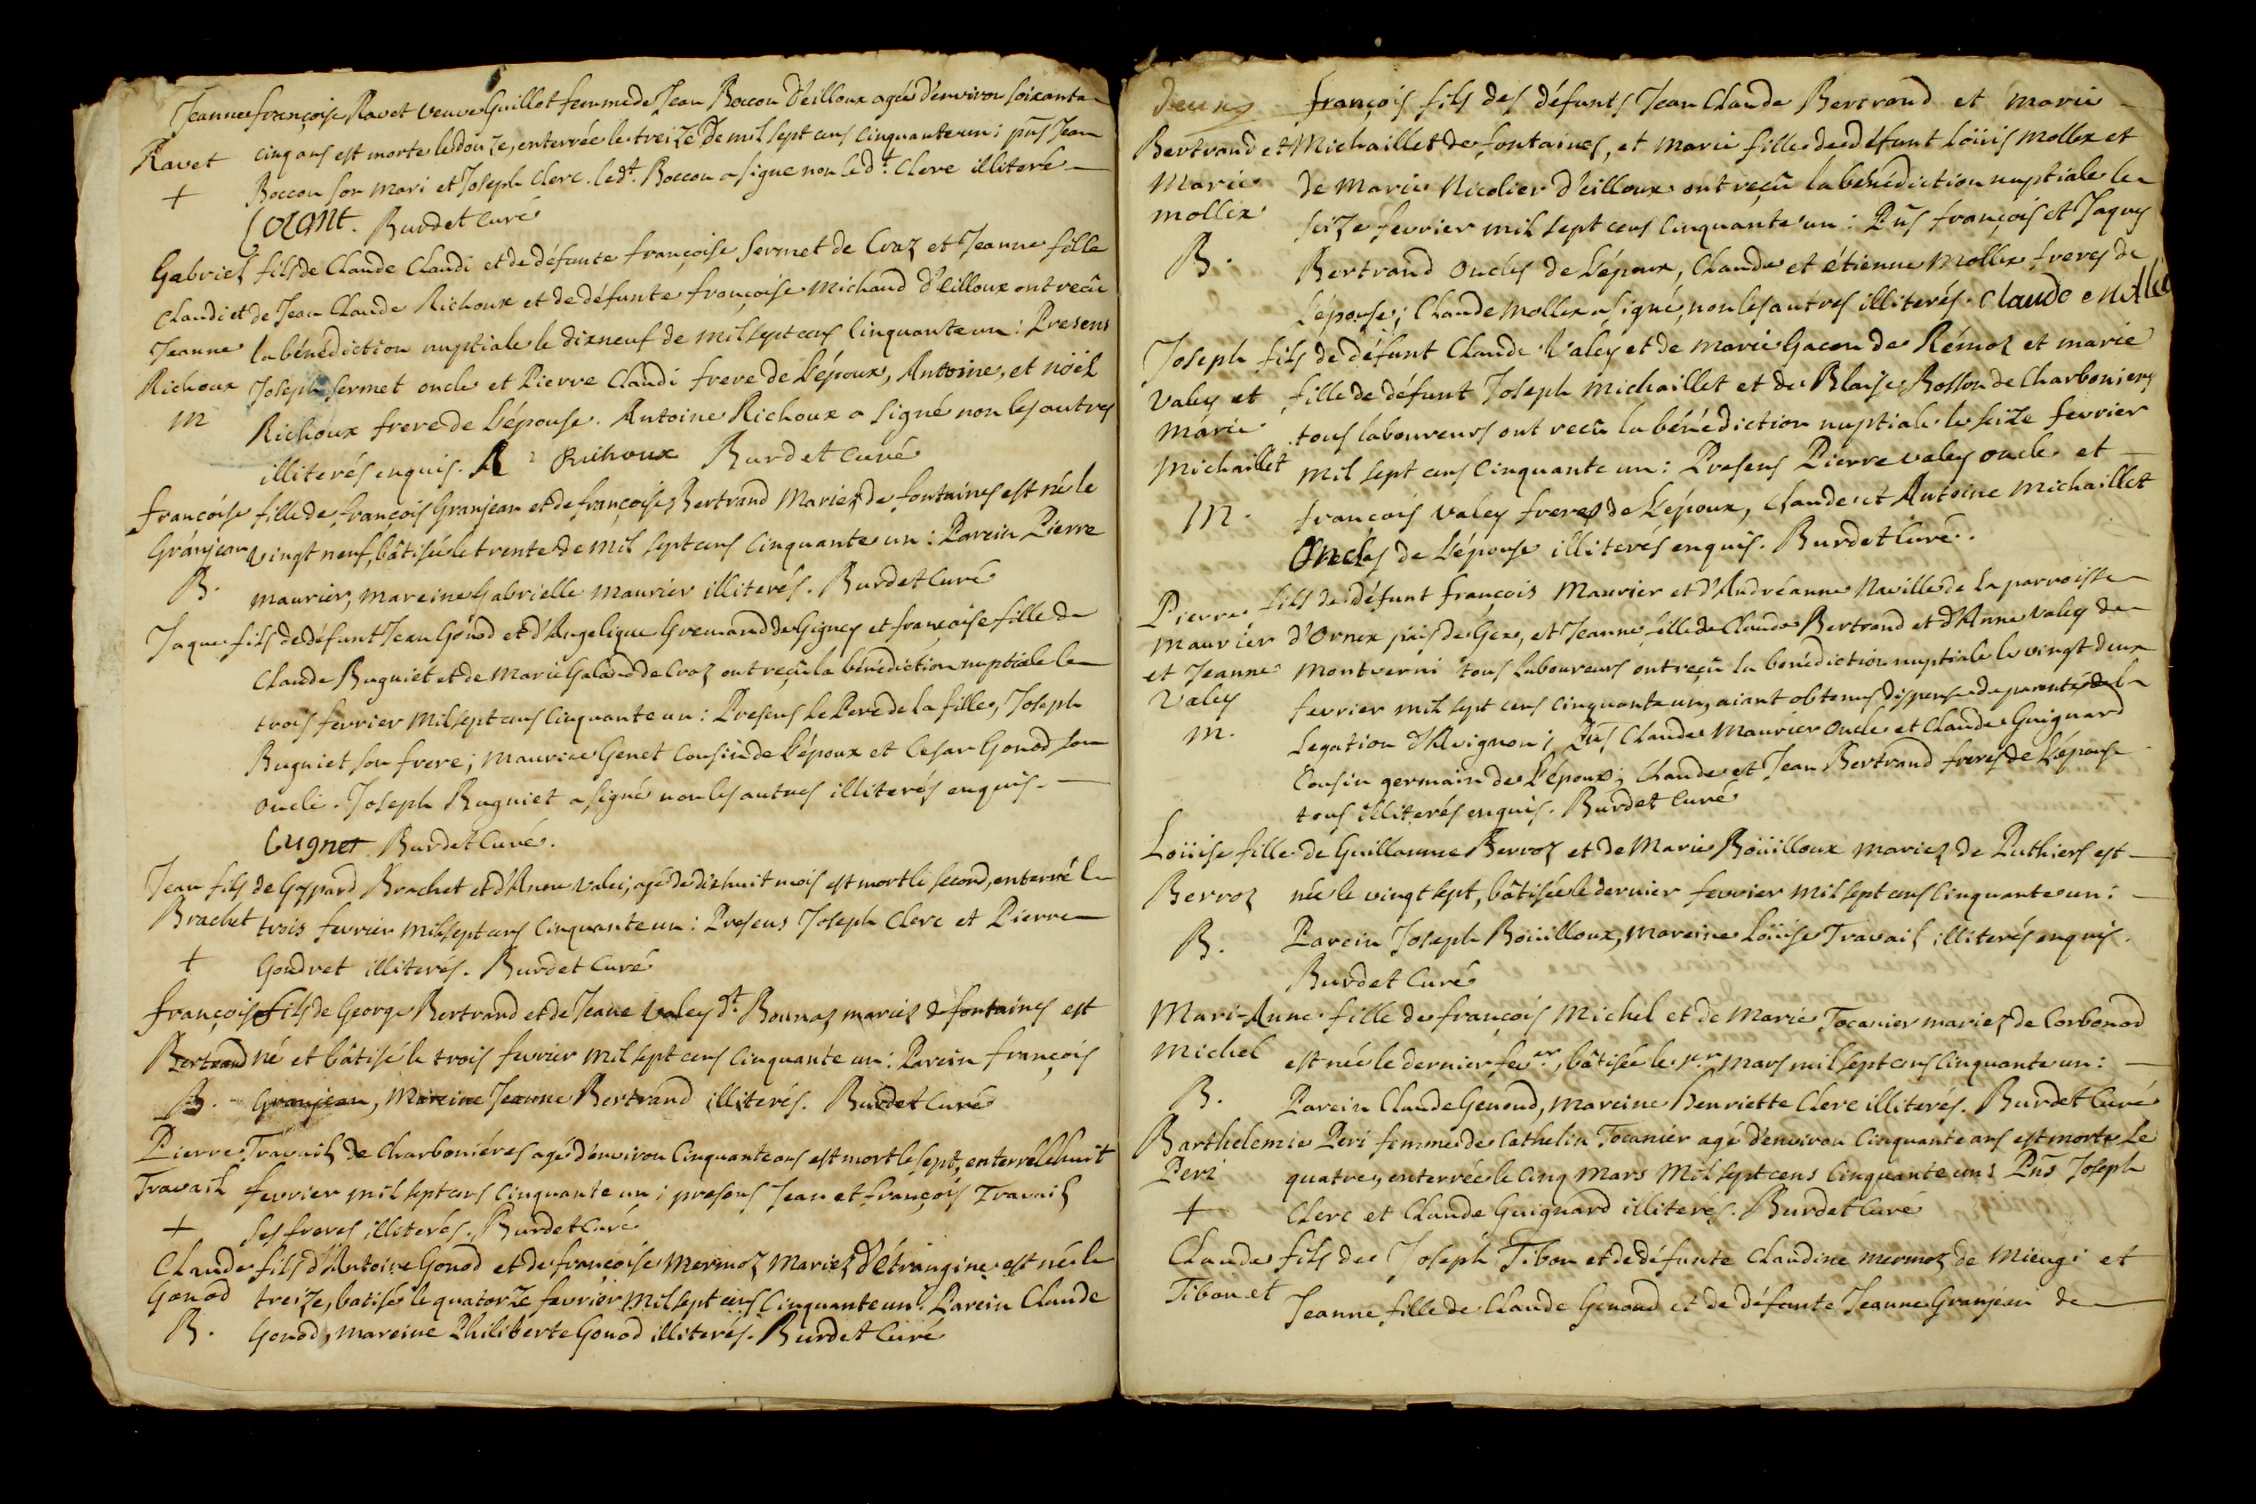 Jeanne françoise Ravet veuve Guillot femme de Jean Boccon d'eilloux agée d'environ soixante
Ravet cinq ans est morte le douze, enterrée le treize de mil sept cens cinquante un : pns Jean
+ Boccon son mari et Joseph Clerc. led.t Boccon a signé non led.t Clerc illiteré
Burdet Curé
Gabriel fils de Claude Claudi et de défunte françoise Sermet de Craz et Jeanne fille
Claudi et de Jean Claude Richoux et de défunte françoise Michaud d'eilloux ont reçû
Jeanne la bénédiction nuptiale le dixneuf de mil sept cens cinquante un : Presens
Richoux Joseph Sermet oncle et Pierre Claudi frere de l'époux, Antoine, et noël
M Richoux frere de l'épouse. Antoine Richoux a signé non les autres
illiterés enquis. A Richoux Burdet Curé
françoise fille de françois Granjean et de françoise Bertrand Mariez de fontaines est né le
Granjean vingt neuf, bâtisé le trente de mil sept cens cinquante un : Parein Pierre
B. maurier, mareine Gabrielle maurier illiterés. Burdet Curé
Jaque fils de défunt Jean Gonod et d'Angelique Gremand de Gigney et françoise fille de
Claude Buguiet et de Marie Galand de Craz ont reçû la bénédiction nuptiale le
trois fevrier mil sept cens cinquante un : Presens le Pere de la fille, Joseph
Buguiet son frere ; Maurice Genet Cousin de l'époux et Cesar Gonod son
oncle. Joseph Buguiet a signé non les autres illiterés enquis.
Bugnet Burdet Curé.
Jean fils de Gaspard Brachet et d'Anne Valei, agé de dixhuit mois est mort le second, enterré le
Brachet trois fevrier mil sept cens cinquante un : Presens Joseph Clerc et Pierre
+ Goudret illiterés. Burdet Curé
françois fils de George Bertrand et de Jeane Valey d.t Bonnaz mariez de fontaines est
Bertrand né et bâtisé le trois fevrier mil sept cens cinquante un : Parein françois
B. Granjean, Mareine Jeanne Bertrand illiterés. Burdet Curé
Pierre Travail de Charboniéres agé d'environ Cinquante ans est mort le sept, enterré le huit
Travail fevrier mil sept cens cinquante un ; presens Jean et françois Travail
+ ses freres illiterés. Burdet Curé
Claude fils d'Antoine Gonod et de françoise Mermoz Mariez d'étrangine est né le
Gonod treize, batisé le quatorze fevrier mil sept cens cinquante un. Parein Claude
B. Gonod, mareine Philiberte Gonod illiterés. Burdet Curé
françois fils des défunts Jean Claude Bertrand et Marie
Bertrand et Michaillet de fontaines, et Marie fille de défunt Loüis Mollex et
Marie de Marie Nicolier d'eilloux ont reçû la bénédiction nuptiale le
mollex seize fevrier mil sept cens cinquante un : Pns françois et Jaques
B. Bertrand oncles de l'époux, Claude et étienne Mollex freres de
l'épouse ; Claude Mollex a signé, non les autres illiterés. Claude Mollet
Joseph fils de défunt Claude Valey et de marie Gacon de Rémoz et marie
Valey et fille de défunt Joseph Michaillet et de Blaise Bosson de Charbonieres
Marie tous laboureurs ont reçû la bénédiction nuptiale le seize fevrier
Michaillet mil sept cens cinquante un : Presens Pierre valey oncle et
M. françois valey freres de l'époux, Claude et Antoine Michaillet
Oncles de l'épouse illiterés enquis. Burdet Curé.
Pierre fils de défunt françois Maurier et d'Andréanne Naville de la parroisse
Maurier d'Ornex païs de Gex, et Jeanne fille de Claude Bertrand et d'Anne Valey de
et Jeanne Montverni tous laboureurs ont reçû la bénédiction nuptiale le vingt deux
Valey fevrier mil sept cens cinquante un, aiant obtenu dispense de parenté de la
m. Legation d'Avignon ; Pns Claude Maurier oncle et Claude Guignard
Cousin germain de l'époux ; Claude et Jean Bertrand freres de l'épouse
tous illiterés enquis. Burdet Curé
Loüise fille de Guillaume Berroz et de Marie Boüilloux mariez de Puthiers est
Berroz née le vingt sept, bâtisée le dernier fevrier mil sept cens cinquante un :
B. Parein Joseph Boüilloux, mareine Loüise Travail illiterés enquis.
Burdet Curé
Mari-Anne fille de françois Michel et de Marie Tocanier mariez de Corbonod
Michel est née le dernier fev.er, bâtisée le p.r mars mil sept cens cinquante un :
B. Parein Claude Genoud, mareine Henriette Clerc illiterés. Burdet Curé
Barthelemie Peri femme de Cathelin Tocanier agé d'environ Cinquante ans est morte le
Peri quatre, enterrée le cinq Mars Mil sept cens cinquante un : Pns Joseph
+ Clerc et Claude Guignard illiterés. Burdet Curé
Claude fils de Joseph Tibon et de défunte Claudine mermoz de Mieugi et
Tibon et Jeanne fille de Claude Genoud et de défunte Jeanne Granjean de